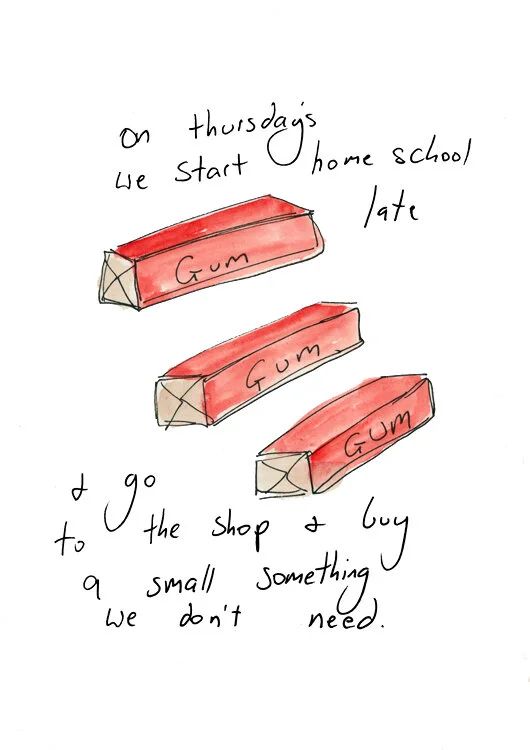 on thursday's
we start home school
late
Gum
Gum
Gum
& go
to the shop & buy
a small something
we don't need.